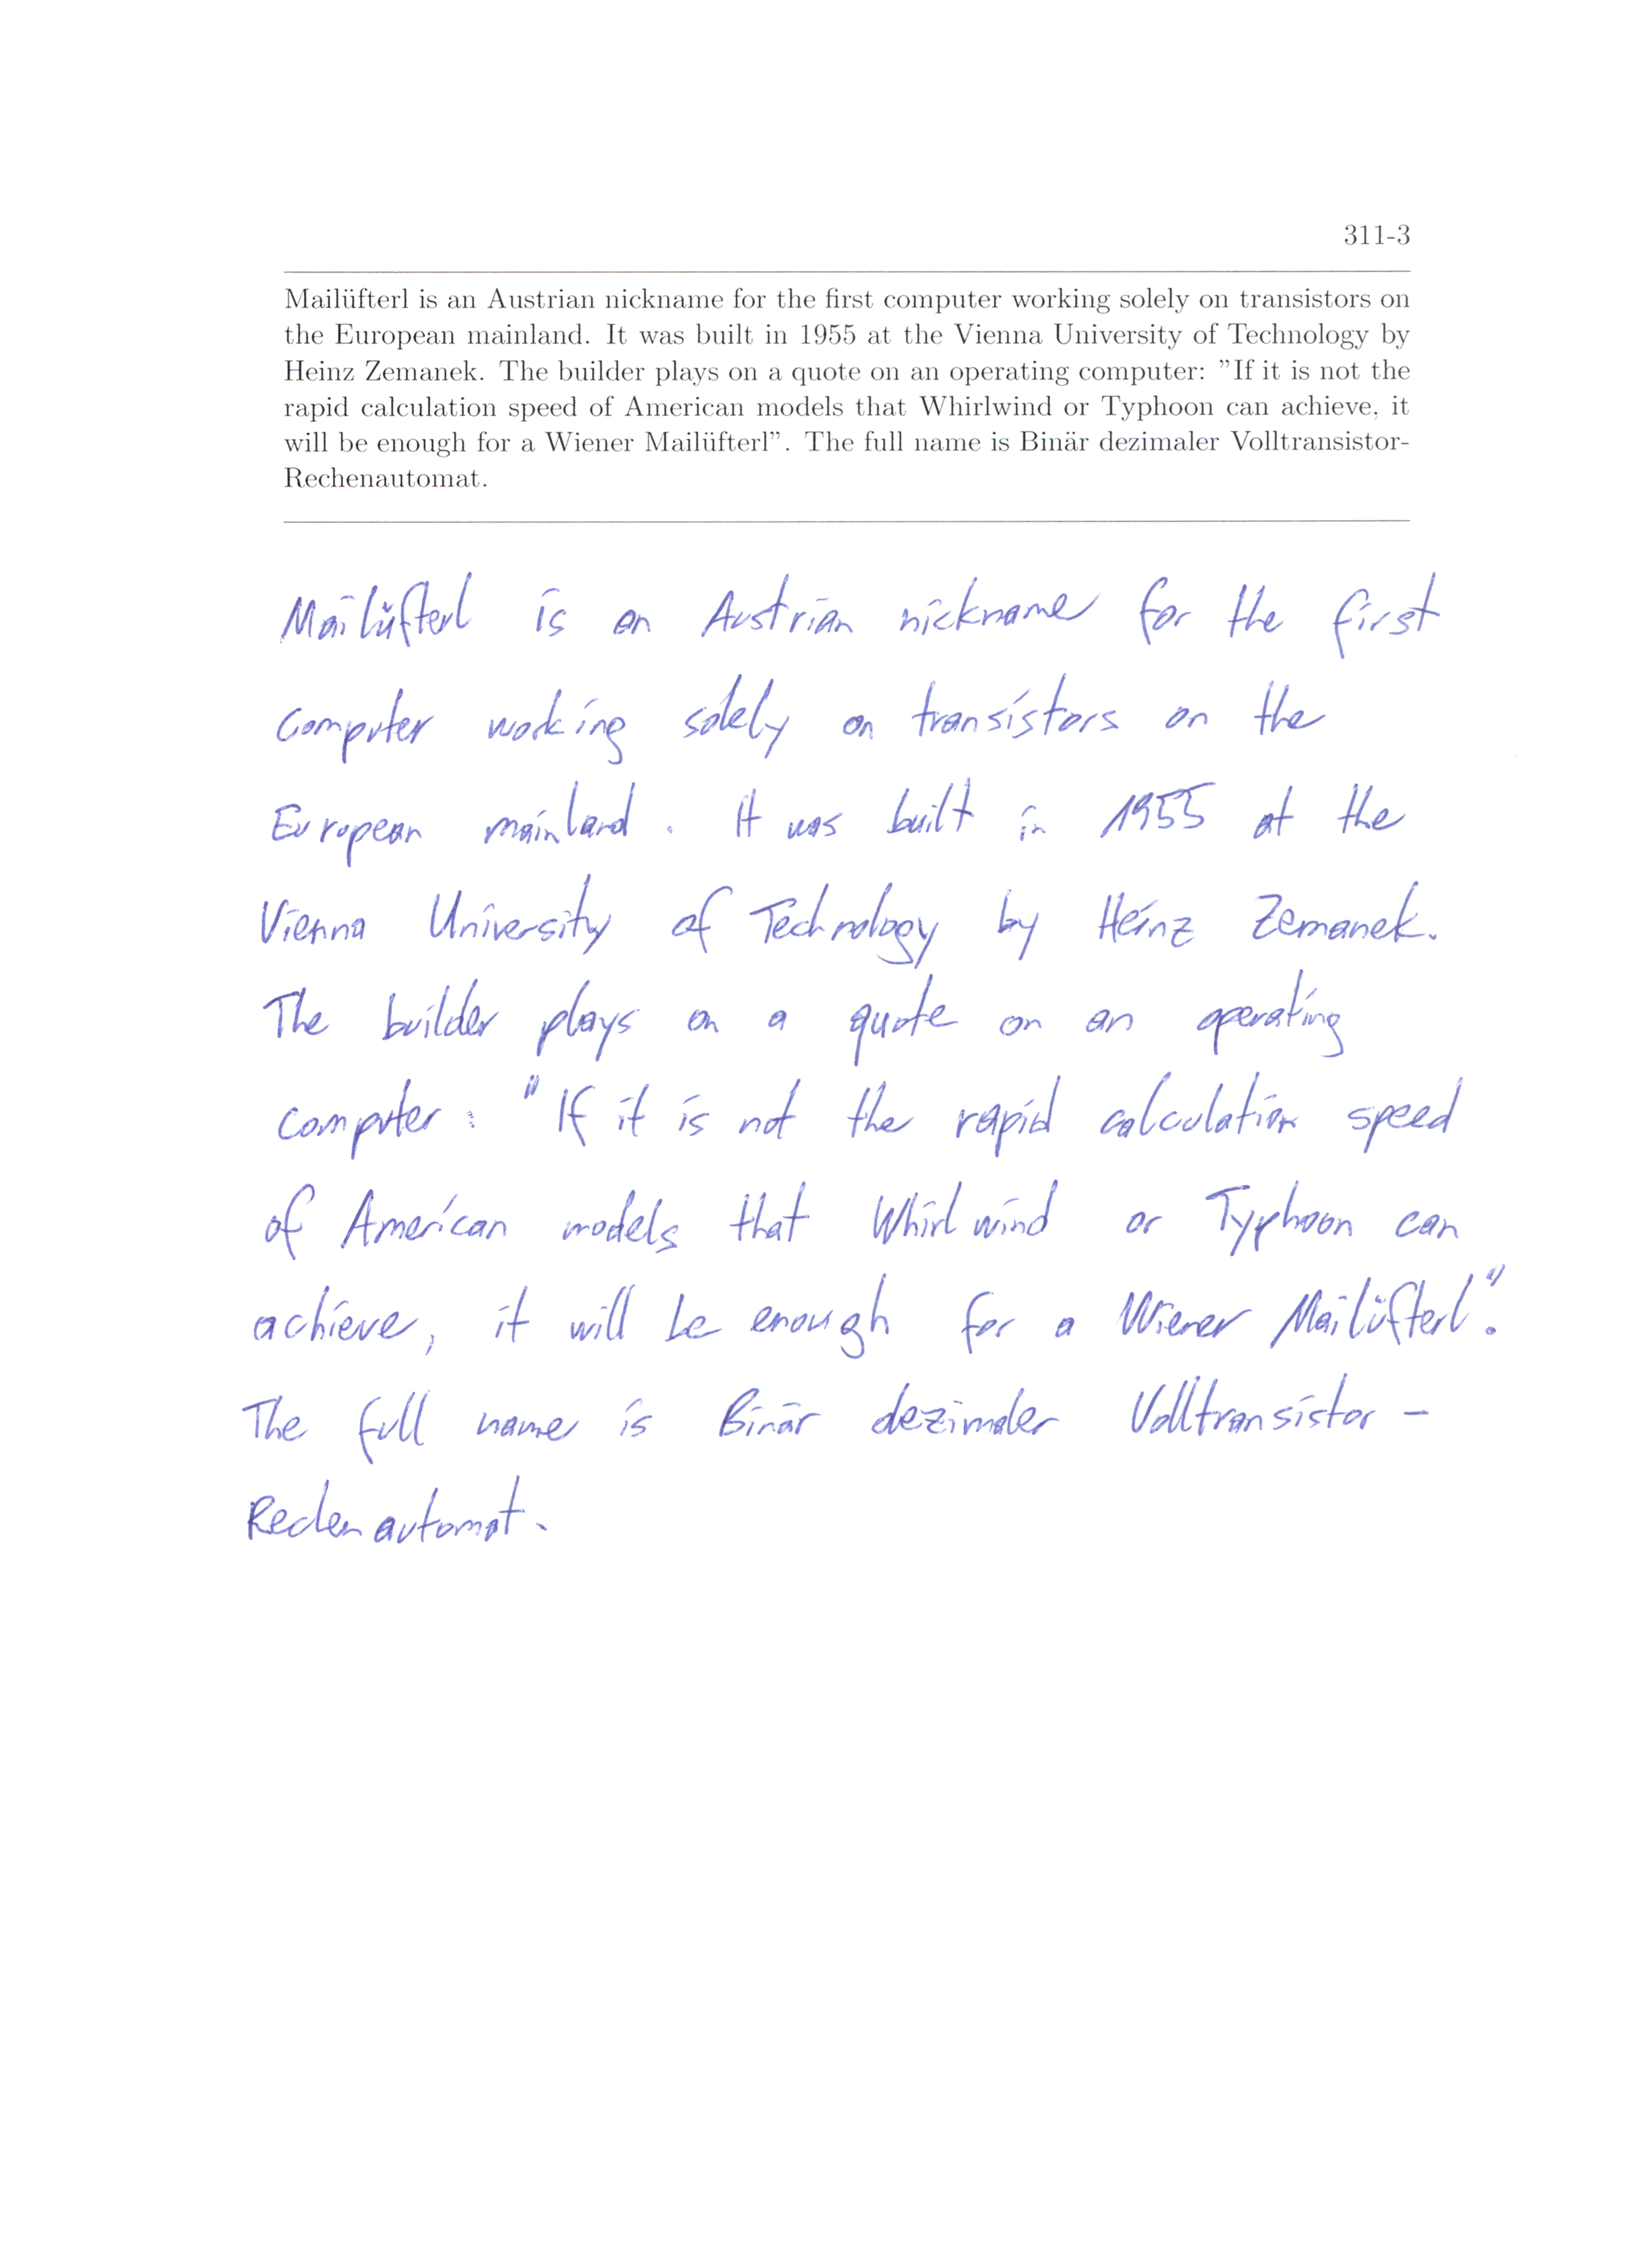 311-3
Mailüfterl is an Austrian nickname for the first computer working solely on transistors on
the European mainland. It was built in 1955 at the Vienna University of Technology by
Heinz Zemanek. The builder plays on a quote on an operating computer: ”If it is not the
rapid calculation speed of American models that Whirlwind or Typhoon can achieve, it
will be enough for a Wiener Mailüfterl”. The full name is Binär dezimaler Volltransistor-
Rechenautomat.
Mailüfterl is an Austrian nickname for the first
computer working solely on transistors on the
European mainland. It was built in 1955 at the
Vienna University of Technology by Heinz Zemanek.
The builder plays on a quote on an operating
computer: "If it is not the rapid calculation speed
of American models that Whirlwind or Typhoon can
achieve, it will be enough for a Wiener Mailüfterl".
The full name is Binär dezimaler Volltransistor-
Rechenautomat.